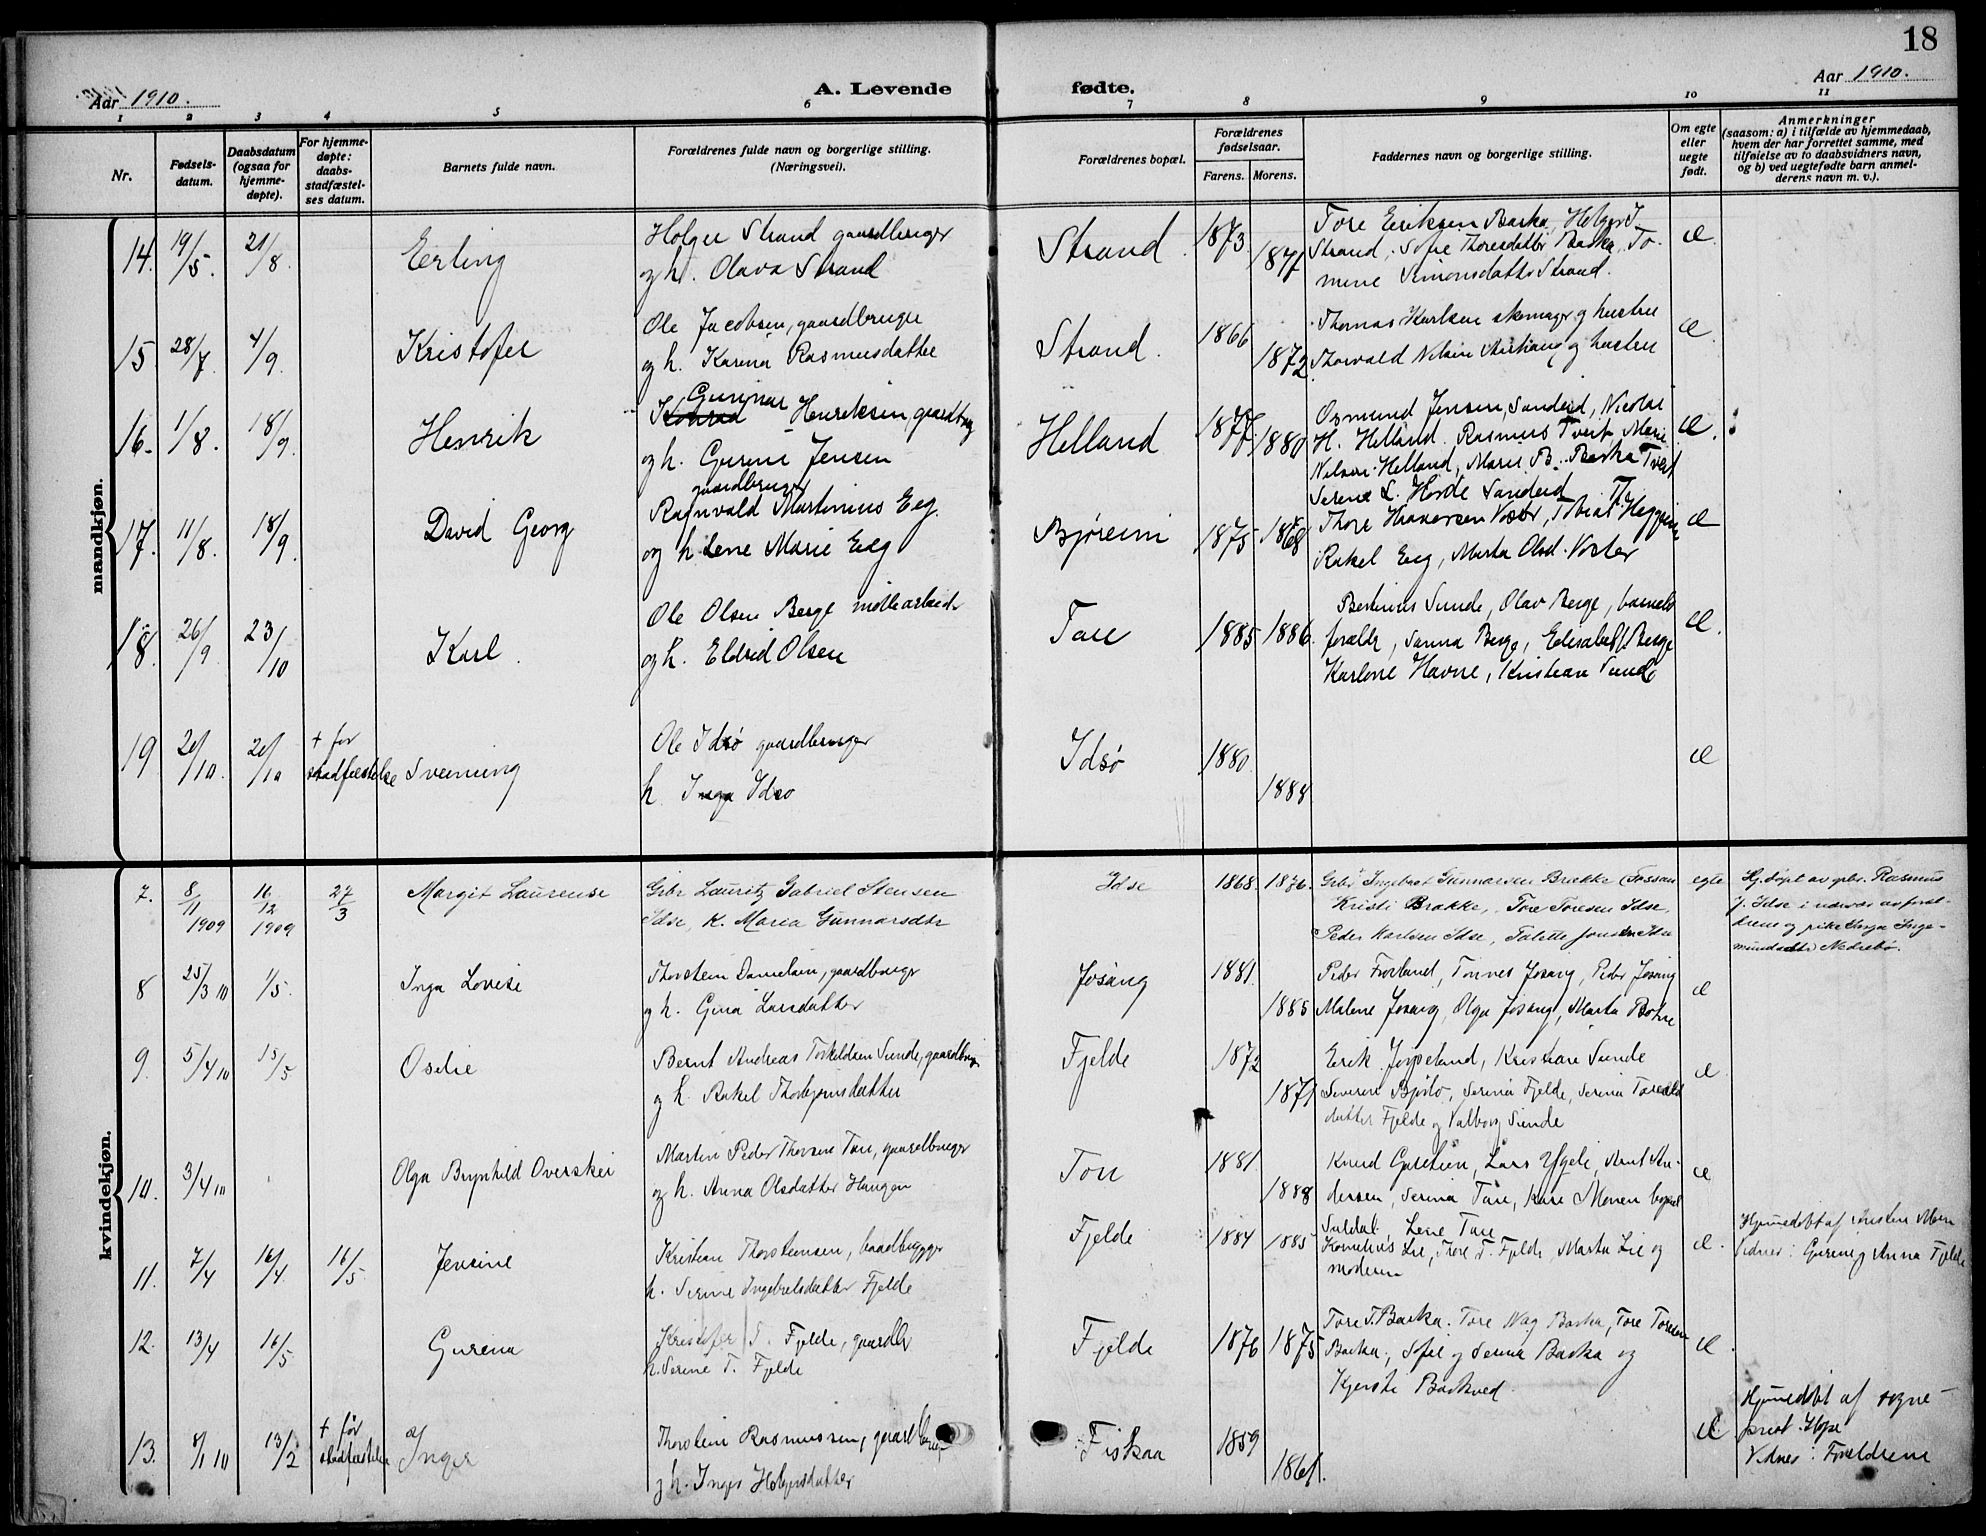 18
Aar 1910.
A. Levende fødte.
Aar 1910.
1 2 3 4 5 6 7 8 9 10 11
Nr.
Fødsels-
datum.
Daabsdatum
(ogsaa for
hjemme-
døpte).
For hjemme-
døpte:
daabs-
stadfæstel-
ses datum.
Barnets fulde navn.
Forældrenes fulde navn og borgerlige stilling.
(Næringsvei).
Forældrenes bopæl.
Forældrenes
fødselsaar.
Farens. Morens.
Faddernes navn og borgerlige stilling.
Om egte
eller
uegte
født.
Anmerkninger
(saasom: a) i tilfælde av hjemmedaab,
hvem der har forrettet samme, med
tilføielse av to daabsvidners navn,
og b) ved uegtefødte barn anmel-
derens navn m. v.).
mandkjøn.
14. 19/5. 21/8. Erling
Holger Strand gaardbruger
og h. Olava Strand
Strand 1873 1871
Tore Eriksen Barka, Holger T.
Strand, Sofie Thoresdatter Barka, To-
mine Simonsdatter Strand.
Æ.
15. 28/7. 4/9. Kristofer
Ole Jacobsen, gaardbruger
og h. Karina Rasmusdatter
Strand. 1866 1872
Thomas Karlsen skomager og hustru
Thorvald Nilsen og hustru
Æ.
16. 1/8. 18/9. Henrik
Gunnar Henriksen, gaardbrug
og h. Gurine Jensen
Helland 1877. 1880
Osmund Jensen, Sandeid, Nicolai
H. Helland. Rasmus Tveit, Marie
Nilsen Helland, Marie B. Barka Tveit
Serena L. Horde Sandeid
Æ.
17. 11/8. 18/9. David Georg
gaardbruger
Ragnvald Martinius Eeg.
og h. Lene Marie Eeg
Bjøreim 1875 1868
Thore Haaversen Voster, Tobias T.
Rakel Eeg, Marta Olsd. Voster
Æ
18. 26/9 23/10 Karl
Ole Olsen Berge møllearbeid.
og h. Eldrid Olsen
Tau 1885 1886.
Bertinus Sunde, Olav Berge, barnets
forældr, Sanna Berge, Elisabeth Berge
Karlene Havne, Kristian Sunde
Æ.
19 20/10. 20/10 + før
stadfæstelse Sveinung
Ole Idsø gaardbruger
h. Inga Idsø
Idsø 1880. 1888
Æ
kvindekjøn.
7. 8/11 1909 16/12 1909 27/3 Margit Laurense
Grbr Lauritz Gabriel Stensen
Idse, K. Maria Gunnarsdtr
Idse 1868. 1876.
Grbr Ingebret Gunnarsen Brække (Fossan
Kristi Brække, Tore Toresen Idse,
Peder Karlsen Idse, Talette Jonsen Idse
egte
Hj.døpt av gbr. Rasmus
J. Idse i nærvær av foræl-
drene og pike Inga Inge-
mundsdtr Nedrebø.
8 25/3 10 1/5. Inga Lovise
Thorstein Danielsen, gaardbruger
og h. Gina Larsdatter
Jøsang 1881. 1885
Peder Frøvland, Tønnes Jøsang, Peder Jøsang
Malene Jøsang, Olga Jøsang, Marta
Æ
9. 5/4 10 15/5 Oselie
Bernt Andreas Torkeldsen Sunde, gaardbrug
og h. Rakel Thorbjørnsdatter
Fjelde 1872 1871
Erik Jørpeland, Kristiane Sunde
Severine Bjørlo, Serina Fjelde, Serina
datter Fjelde og Valborg Sunde
Æ
10. 3/4 10 Olga Brynhild Overskei
Martin Peder Thorsen Tau, gaardbruger
og h. Anna Olsdatter Haugen
Tou 1881 1888
Knud, Lars Ygele, Arnt An-
dersen, Serina Tau, Kari Monen
Suldal. Lene Tau
Æ
11. 7/4 16/4. 16/5. Jensine
Kristian Thorsteinsen, baadbygger
h. Serine Ingebretsdatter Fjelde
Fjelde 1884 1885
Kornelius Lie, Tore T. Fjelde, Marta Lie og
moderen
Æ.
Hjemmedøbt af
Vidner: Gurine og Anna Fjelde
12. 13/4 16/5 Gurina
Kristofer T. Fjelde, gaardbr
h. Serine T. Fjelde
Fjelde 1876 1875
Tore T. Barka. Tore Nag Barka, Tore Toresen
Barka, Sofie og Serina Barka og
Kjersti Barkved.
Æ.
13. 8/1 10 13/2 + før
stadfæstelse Inger
Thorstein Rasmussen, gaardbrug
og h. Inger Holgersdatter
Fiskaa 1859 1861.
Æ
Hjemmedøbt af sogne-
prest Hope
Vidner: Forældrene